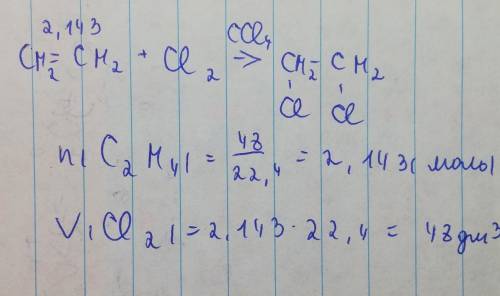 2,143
CCl₄
CH₂=CH₂ + Cl₂ → CH₂-CH₂
Cl Cl
n(C₂H₄) = 48/22,4 = 2,143(моль)
V(Cl₂) = 2,143·22,4 = 48 дм³